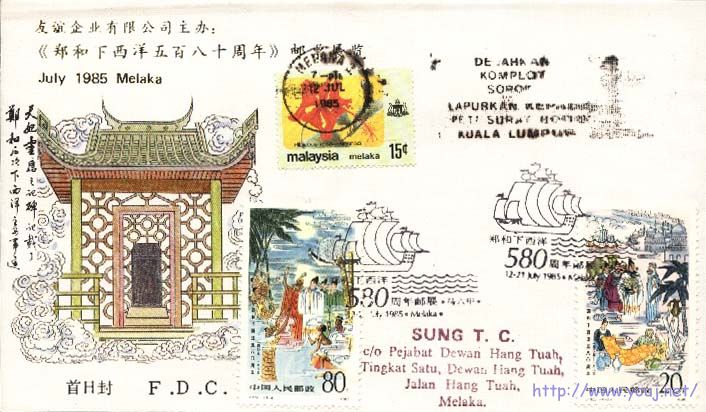 友谊企业有限公司主办:
《郑和下西洋五百八十周年》邮票展览
July 1985 Melaka
天妃灵应之记碑记载了
郑和七次下西洋之事迹
MELAKA
12 JUL
1985
malaysia melaka 15¢
KOMPLOT
SOROT
LAPURKAN
PETI SURAT
KUALA LUMPUR
郑和下西洋
580周年邮展
12-21 July 1985
下西洋
580周年邮展·马六甲·
July 1985 • Melaka •
中国人民邮政 80
中国人民邮政 20
SUNG T. C.
c/o Pejabat Dewan Hang Tuah,
Tingkat Satu, Dewan Hang Tuah,
Jalan Hang Tuah,
Melaka.
首日封 F.D.C.